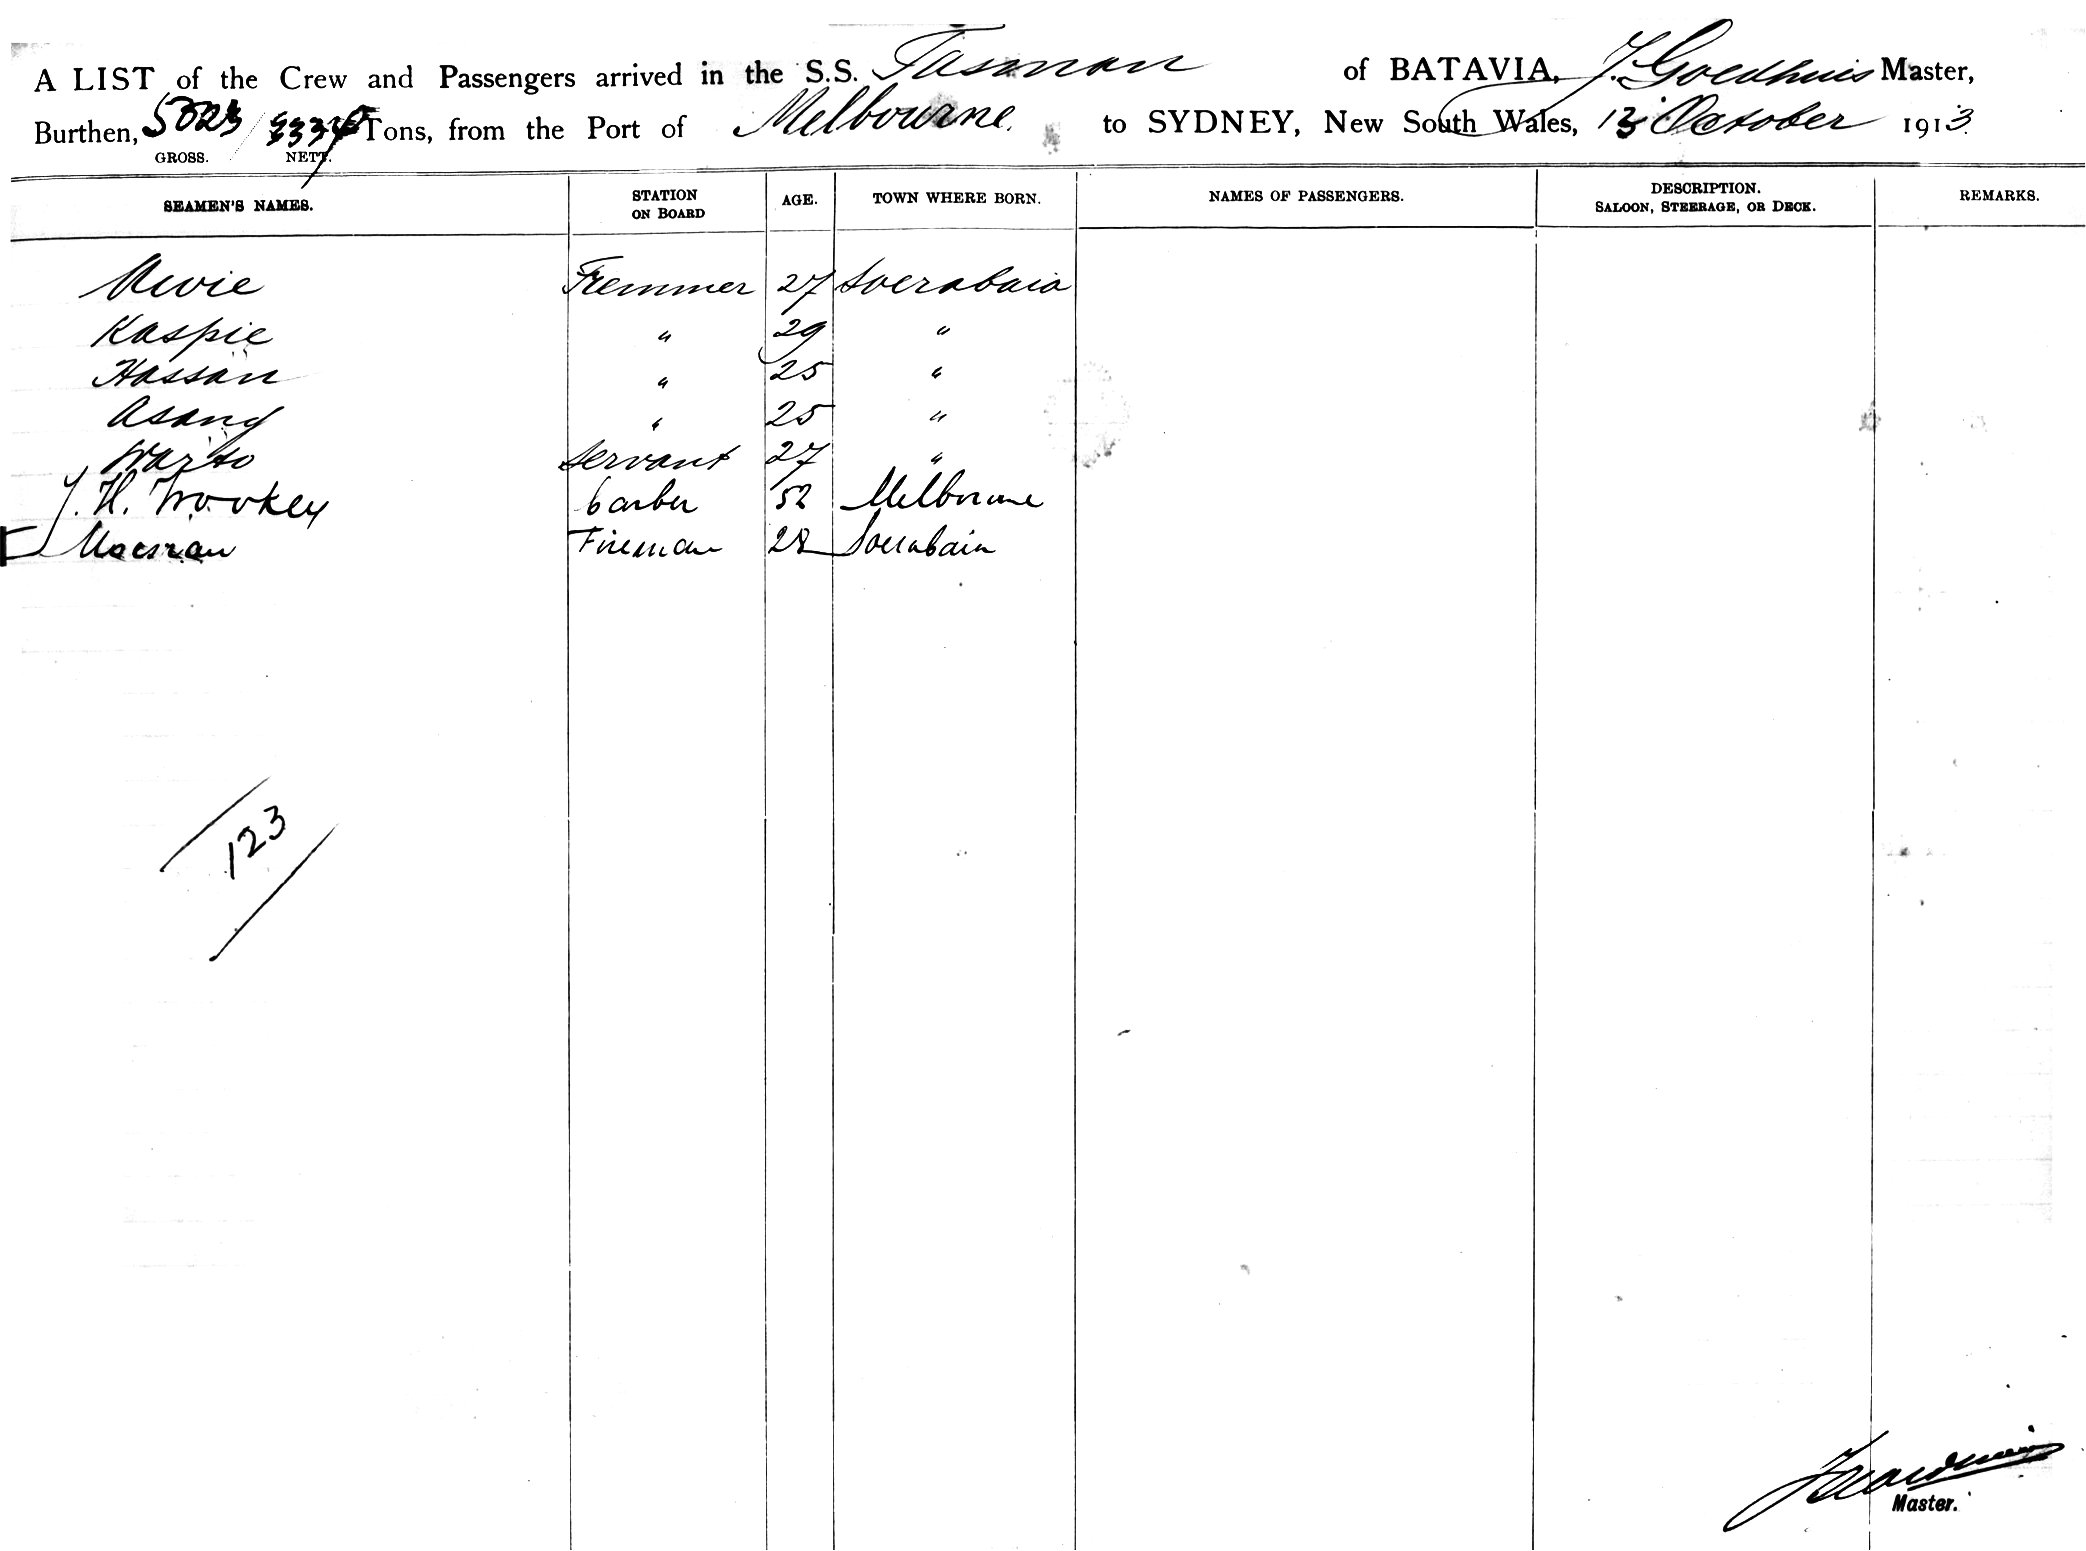 A LIST of the Crew and Passengers arrived in the S.S. Tasman of BATAVIA, J. Goedhuis Master,
Burthen, 5023 / Tons, from the Port of Melbourne. to SYDNEY, New South Wales, 13 October 1913.
GROSS. NETT.
SEAMEN'S NAMES. STATION ON BOARD AGE. TOWN WHERE BORN. NAMES OF PASSENGERS. DESCRIPTION. SALOON, STEERAGE, OR DECK. REMARKS.
27 Soerabaia
Kaspie " 29 "
Hassan " 25 "
Asang " 25 "
Warso Servant 27 "
J. H. Wookey barber 52 Melbourne
Fireman 28 Soerabaia
123
Master.